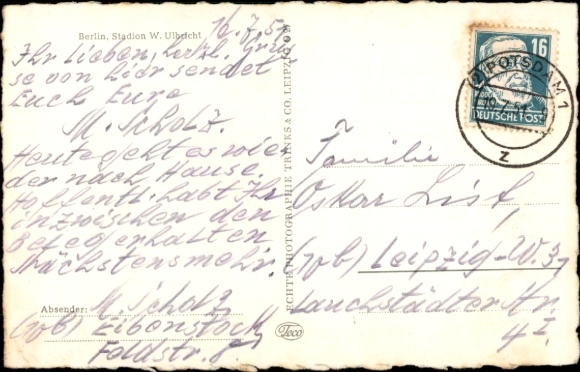 Berlin, Stadion W. Ulbricht
16.7.51
Ihr Lieben, herzl. Grüs-
se von hier sendet
Euch Eure
M. Scholz.
Heute geht es wie
der nach Hause.
Hoffentl. habt Ihr
inzwischen den
erhalten
Nächstens mehr.
Absender: M Scholz
(10b) Eibenstock
Feldstr. 8.
ECHTE PHOTOGRAPHIE TRINKS & CO. LEIPZIG
Teco
16
DEUTSCHE POST
(2) POTSDAM 1
z
Familie
Oskar List,
(10b) Leipzig-W. 3
Lauchstädter Str.
4 I.